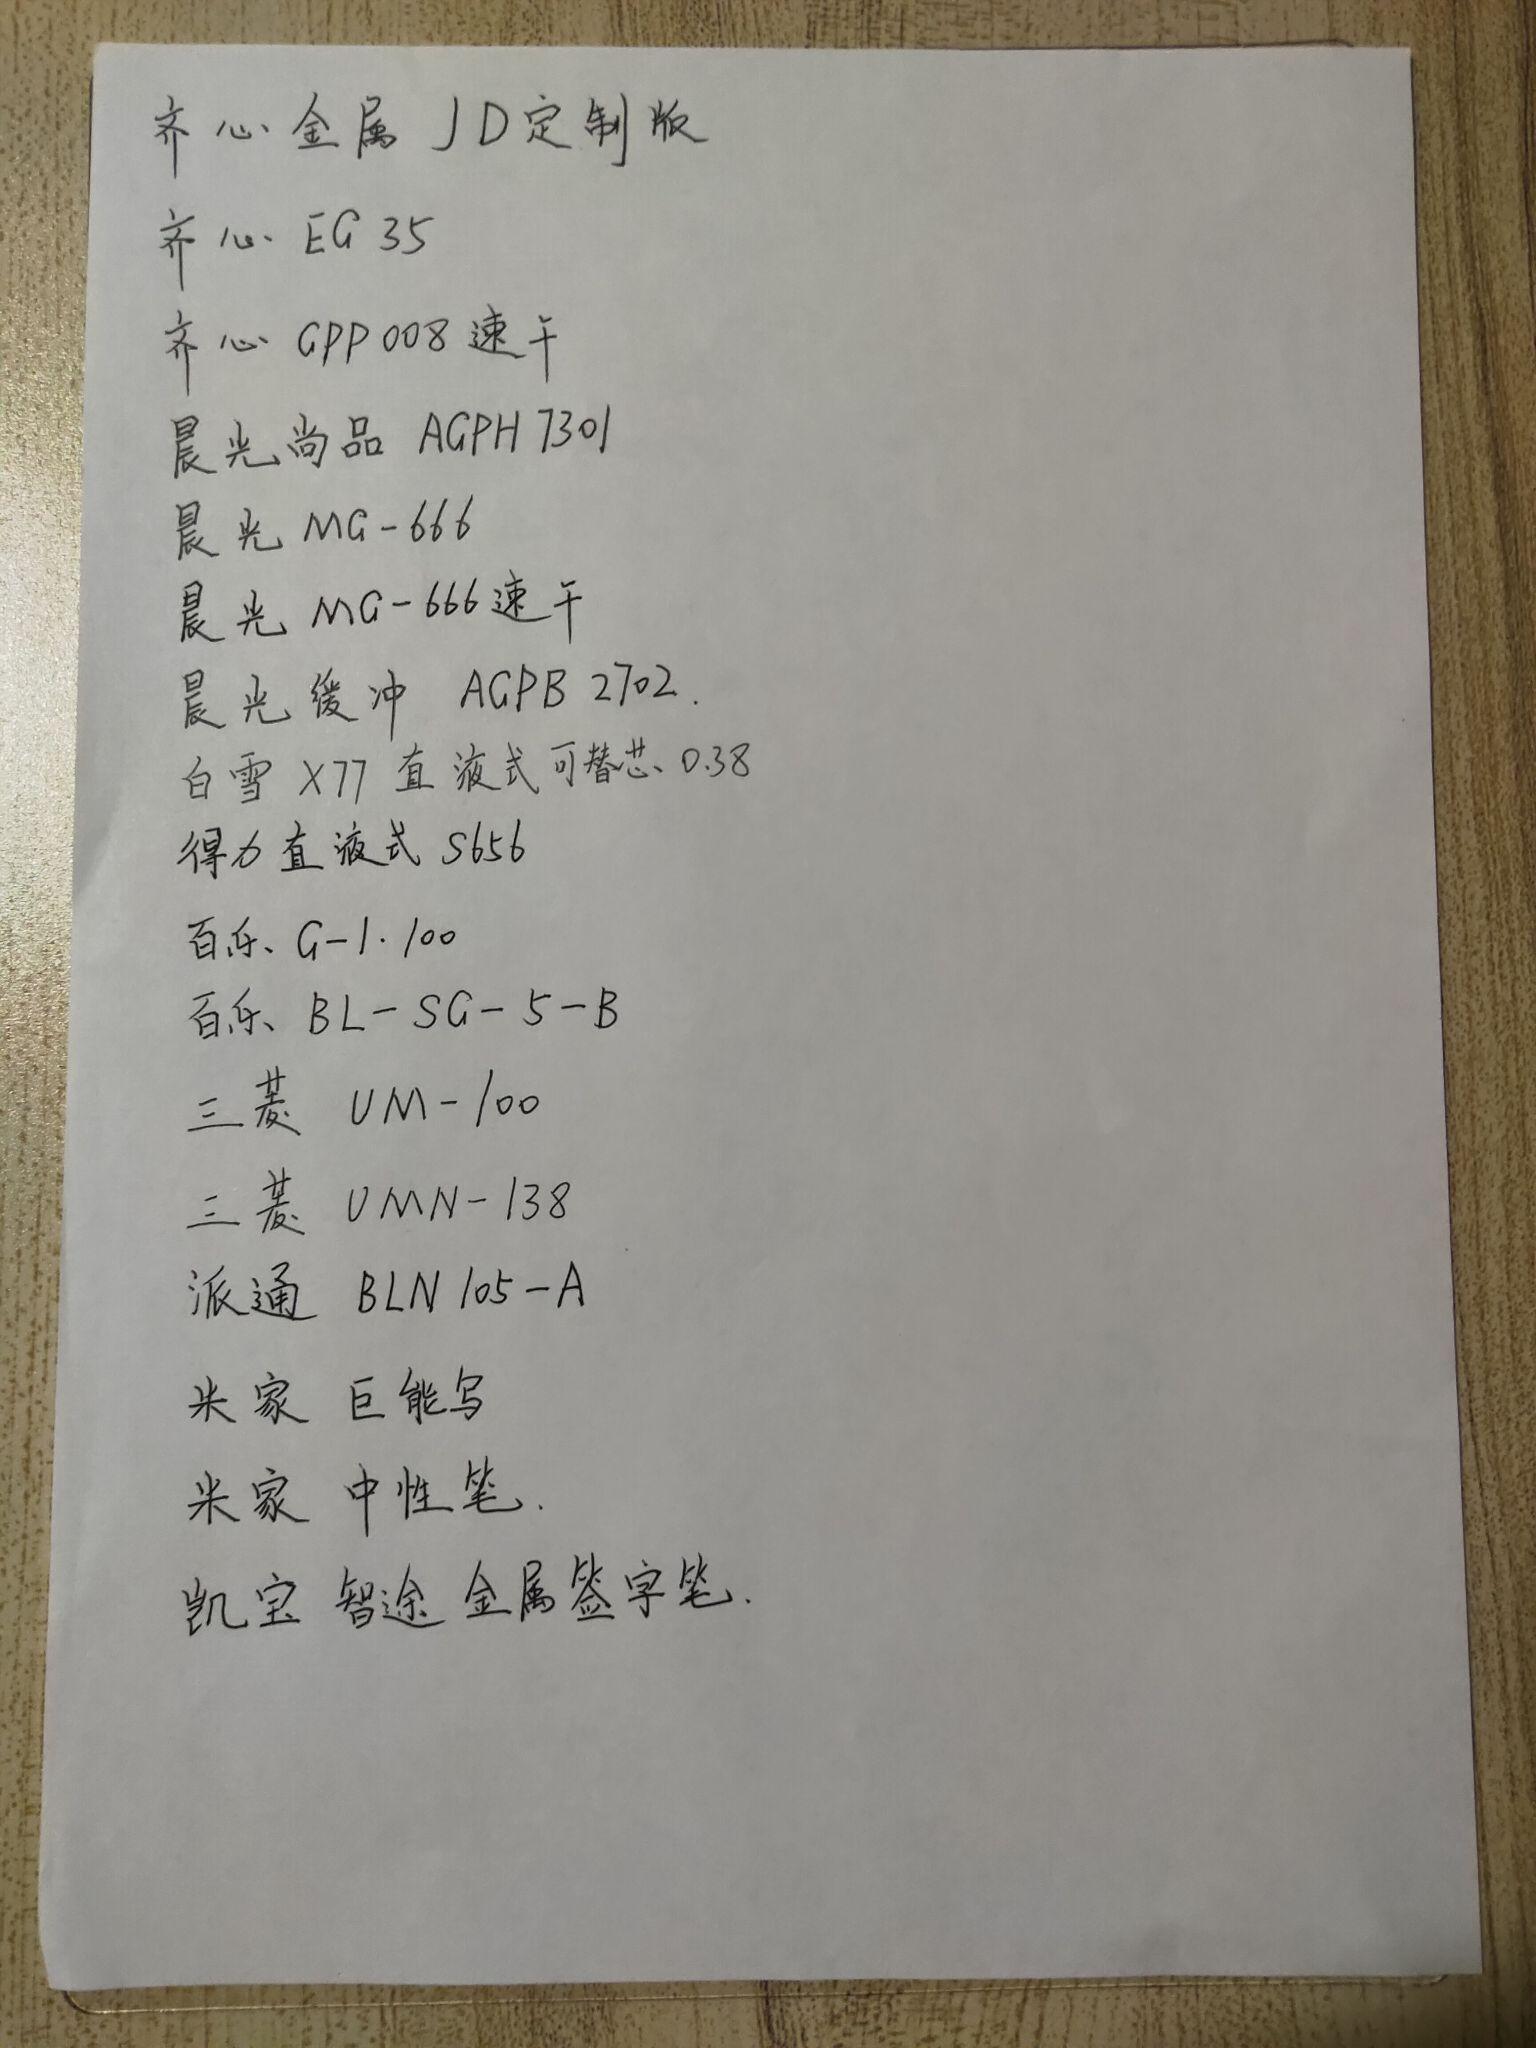 齐心金属 JD定制版
齐心 EG 35
齐心 GPP 008 速干
晨光尚品 AGPH 7301
晨光 MG-666
晨光 MG-666速干
晨光缓冲 AGPB 2702.
白雪 X77 直液式可替芯 0.38
得力直液式 S656
百乐 G-1·100
百乐 BL-SG-5-B
三菱 UM-100
三菱 UMN-138
派通 BLN 105-A
米家 巨能写
米家 中性笔.
凯宝 智途 金属签字笔.